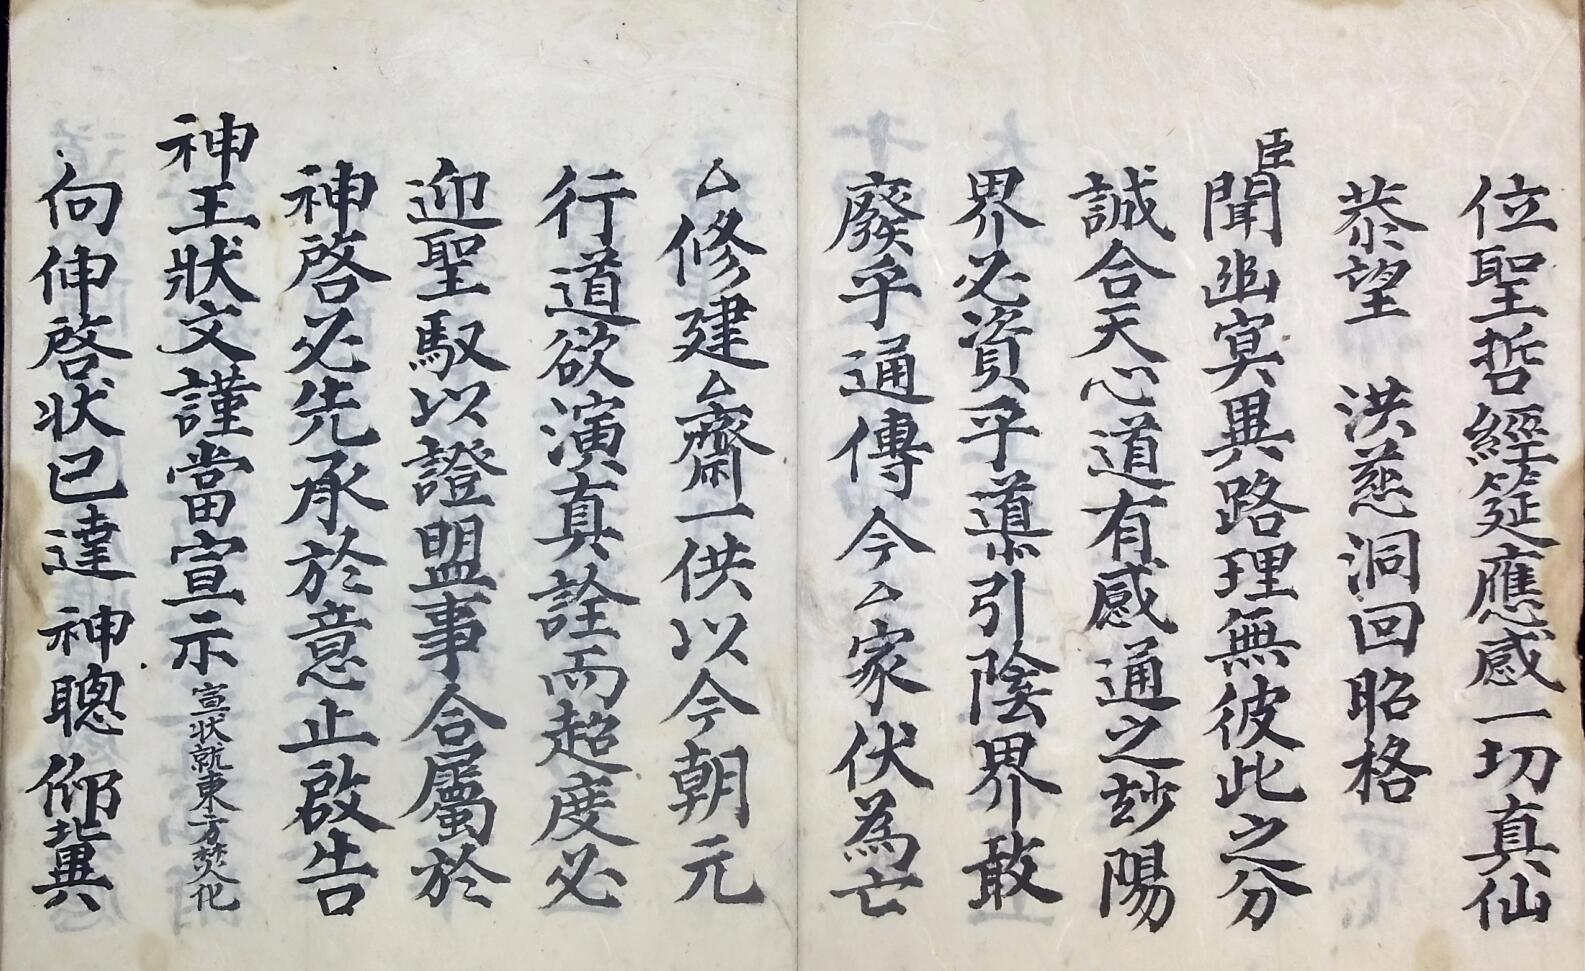 位聖哲經筵應感一切真仙
恭望 洪慈洞回昭格
臣聞幽冥異路理無彼此之分
誠合天心道有感通之玅陽
界必資乎導引陰界敢
廢乎通傳今厶家伏為亡
厶修建厶齋一供以今朝元
行道欲演真詮而超度必
迎聖馭以證盟事合屬於
神啓必先承於意止啟告
神王狀文謹當宣示宣状就東方焚化
向伸啓状已達 神聰仰冀